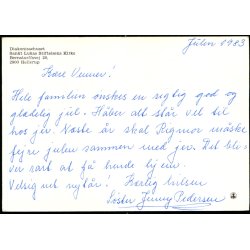 Julen 1983
Diakonissehuset
Sankt Lukas Stiftelsens Kirke
Bernstorffsvej 20,
2900 Hellerup
Kære Venner!
Hele familien ønskes en rigtig god og
glædelig jul. Håber alt står vel til
hos jer. Næste år skal Rigmor måske
fejre julen sammen med jer. Det bliver
rart at få hende hjem.
Velsignet nytår! Kærlig hilsen
Søster Jenny Pedersen